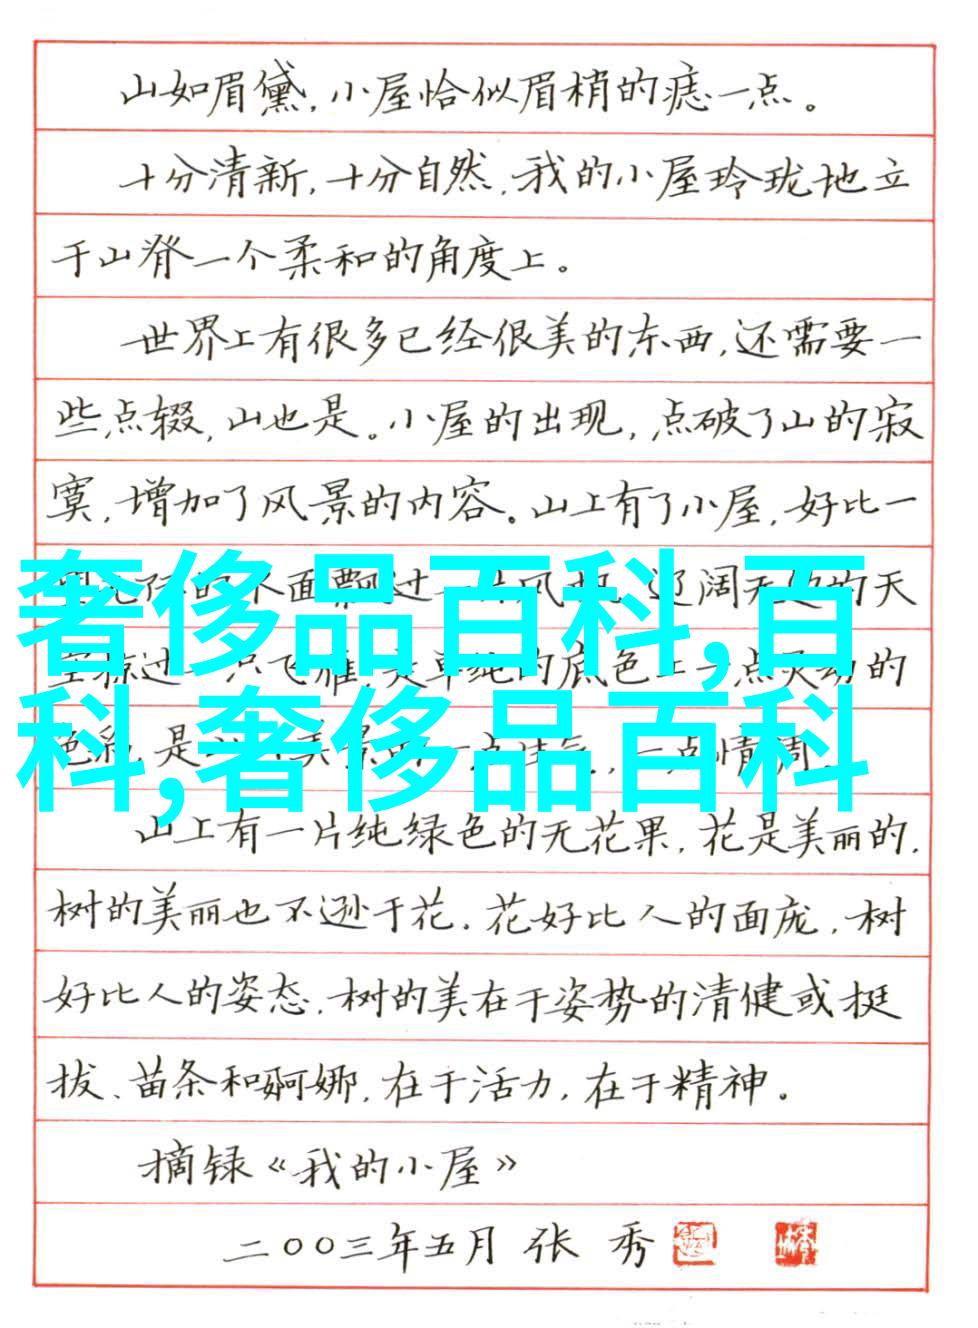 山如眉黛,小屋恰似眉梢的痣一点。
十分清新,十分自然,我的小屋玲珑地立
于山脊一个柔和的角度上。
世界上有很多已经很美的东西,还需要一
些点缀,山也是。小屋的出现,点破了山的寂
寞,增加了风景的内容。山上有了小屋,好比一
的水面飘过一片风帆,辽阔无边的天
空掠过一只飞雁,是单纯的底色上一点灵动的
色彩,是一点情调。
奢侈品百科,百
科,奢侈品百科
山上有一片纯绿色的无花果,花是美丽的,
树的美丽也不逊于花。花好比人的面庞,树
好比人的姿态。树的美在于姿势的清健或挺
拔、苗条和婀娜,在于活力,在于精神。
摘録《我的小屋》
二〇〇三年五月 张 秀